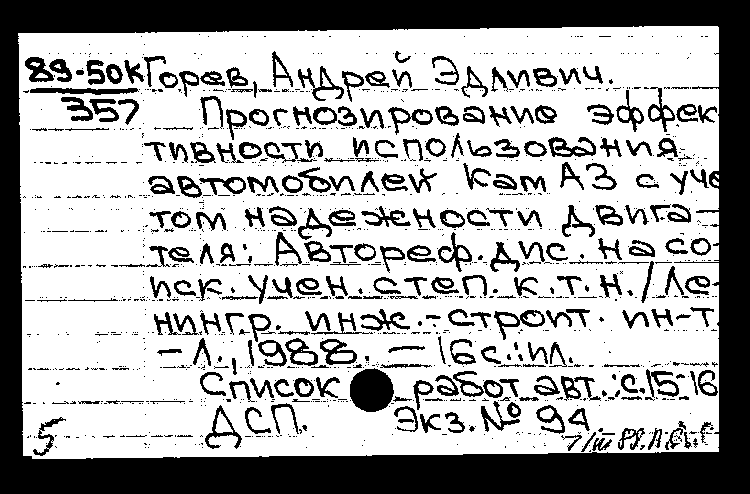 89-50к Горев, Андрей Эдливич.
357 Прогнозирование эффек-
тивности использования
автомобилей КамАЗ с уче
том надежности двига-
теля: Автореф. дис. на со-
иск. учен. степ. к.т.н./Ле-
нингр. инж.-строит. ин-т.
- Л., 1988. - 16с.:ил.
Список работ авт.: с.15-16
ДСП. Экз. № 94
5